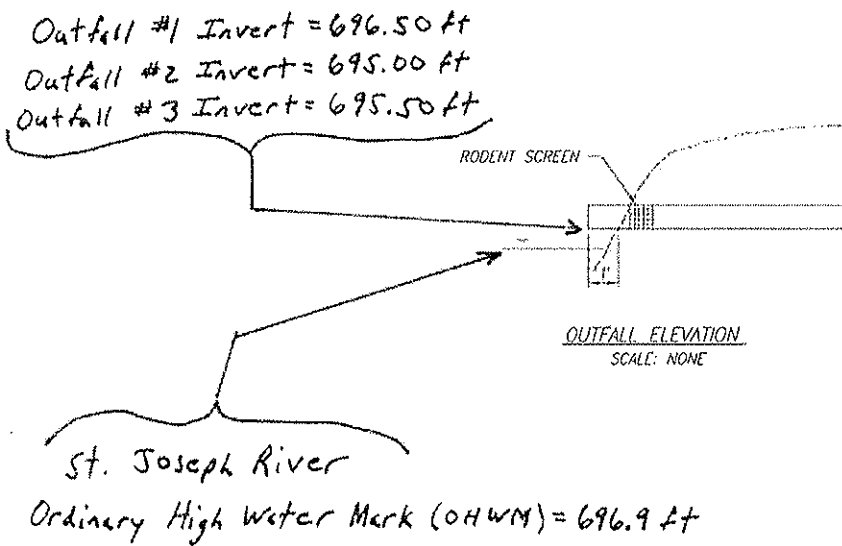 Outfall #1 Invert = 696.50 ft
Outfall #2 Invert = 695.00 ft
Outfall #3 Invert = 695.50 ft
RODENT SCREEN
1'
OUTFALL ELEVATION
SCALE: NONE
St. Joseph River
Ordinary High Water Mark (OHWM) = 696.9 ft